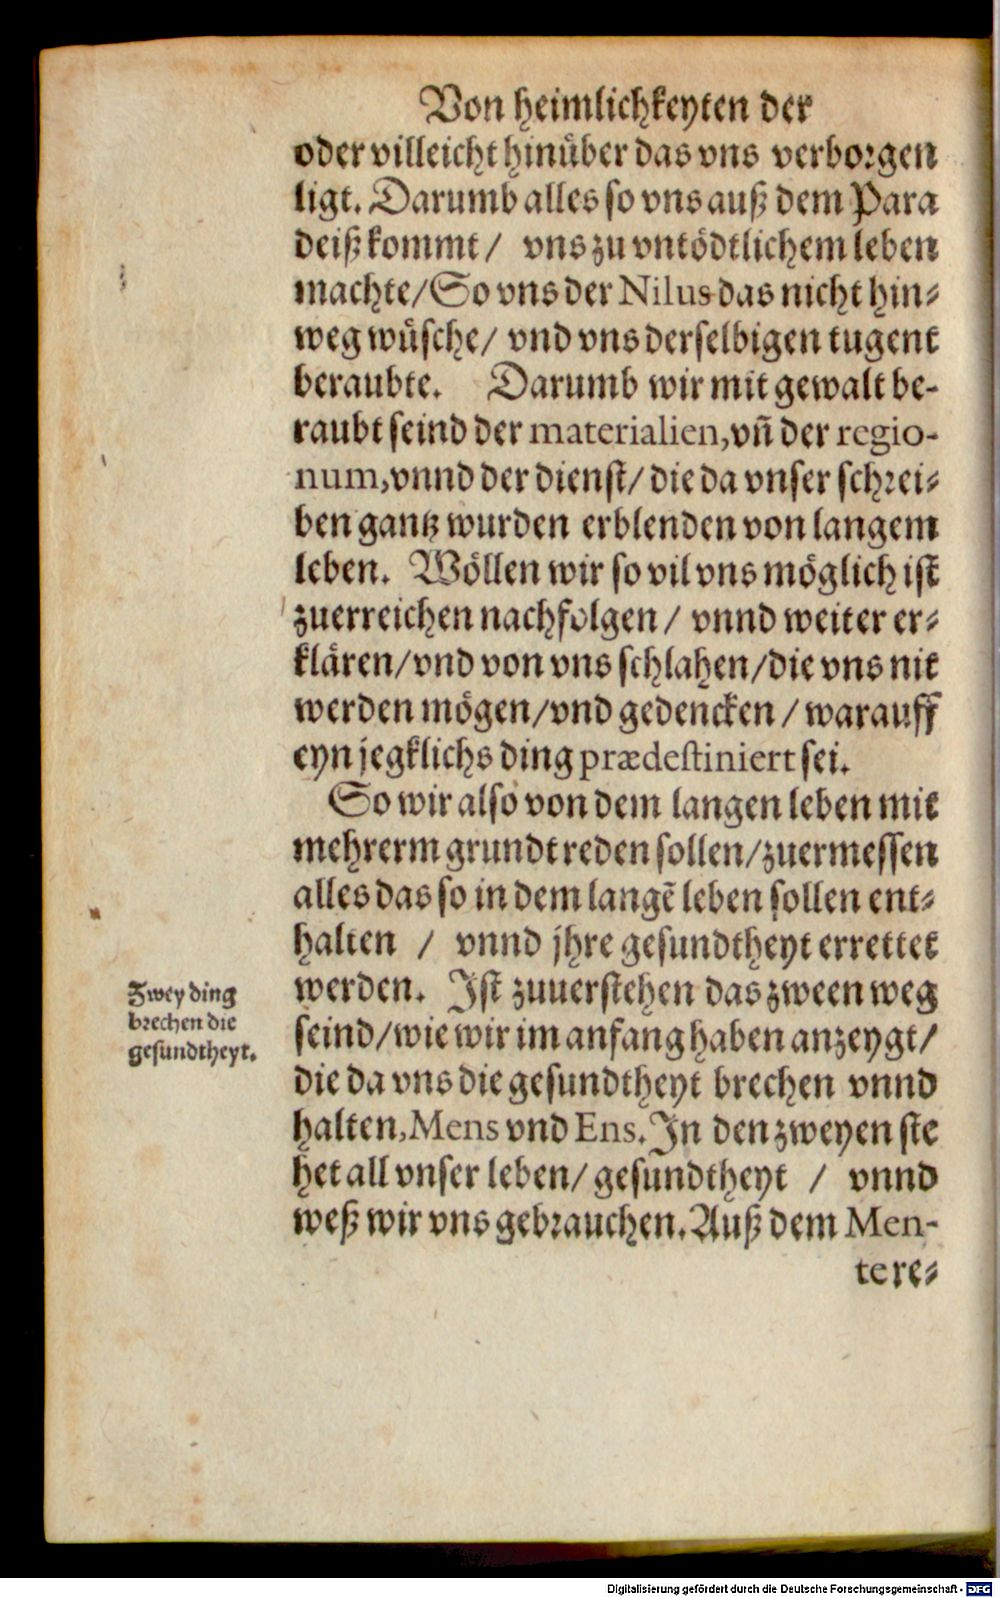 Von heimlichkeyten der
oder villeicht hinuͤber das vns verborgen
ligt. Darumb alles so vns auß dem Para
deiß kommt / vns zu vntoͤdtlichem leben
machte/So vns der Nilus das nicht hin⸗
weg wuͤsche/ vnd vns derselbigen tugent
beraubte. Darumb wir mit gewalt be-
raubt seind der materialien,vñ der regio-
num,vnnd der dienst/ die da vnser schrei⸗
ben gantz wurden erblenden von langem
leben. Woͤllen wir so vil vns moͤglich ist
zuerreichen nachfolgen / vnnd weiter er⸗
klaͤren/vnd von vns schlahen/die vns nit
werden moͤgen/vnd gedencken / warauff
eyn jegklichs ding prædestiniert sei.
So wir also von dem langen leben mit
mehrerm grundt reden sollen/zuermessen
alles das so in dem langē leben sollen ent⸗
halten / vnnd jhre gesundtheyt errettet
werden. Ist zuuerstehen das zween weg
seind/wie wir im anfang haben anzeygt/
die da vns die gesundtheyt brechen vnnd
halten,Mens vnd Ens.In den zweyen ste
het all vnser leben/ gesundtheyt / vnnd
weß wir vns gebrauchen.Auß dem Men-
te re⸗
Zwey ding
brechen die
gesundtheyt.
Digitalisierung gefördert durch die Deutsche Forschungsgemeinschaft - DFG